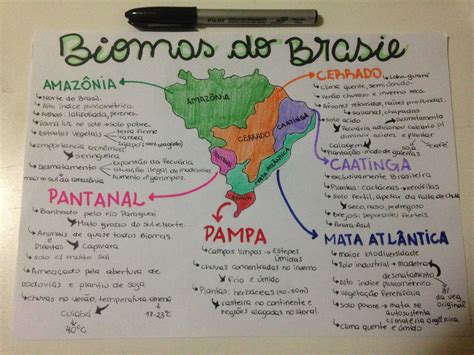 PILOT
Biomas do Brasil
AMAZÔNIA
Norte do Brasil
Alto índice pluviométrico
Folhas: latifoliadas, perenes.
solo pobre.
Estratos vegetais
terra firme
Várzea
igapó
Importância econômica
seringueira
Desmatamento
Expansão da Pecuária
atuação ilegal de madeireiras
Aumento p/ garimpos.
mas no sul da amazônia
PANTANAL
Banhado pelo rio Paraguai
Mato grosso do Sul e Norte.
Animais de quase todos Biomas.
e Plantas
Capivara
solo c/ muito sal
Ameaçado pela abertura de
rodovias e plantio de soja
chuvas no verão, temperatura amena
Cuiabá
40°C
17-23°C
AMAZÔNIA
CERRADO
CAATINGA
PANTANAL
MATA ATLÂNTICA
PAMPA
PAMPA
Campos limpos
estepes
úmidas
chuvas concentradas no inverno
Frio e úmido
Plantas: herbáceas (10-50cm)
rasteira no continente e
regiões alagadas no litoral.
CERRADO
Lobo-guará
clima quente, sem. úmido.
verão chuvoso e inverno seco.
Árvores retorcidas, raízes profundas.
savanas, chapadas
solo ácido
desmatamento
Pecuária adicionar calcário p/
diminuir acidez e plantar
calagem
soja.
Plantação modo de guerras
CAATINGA
exclusivamente Brasileira
Plantas: cactáceas
xerófilas
solo fértil, apesar da falta de chuva
seco, raso, pedregoso
Brejos: depressões férteis
Area úmida.
MATA ATLÂNTICA
maior biodiversidade
Polo industrial
madeira
desmatamento
Alto índice pluviométrico
vegetação Perenifólia
solo pobre
mata se original
autosustenta
c/ matéria orgânica
Clima quente e úmido
da veg.